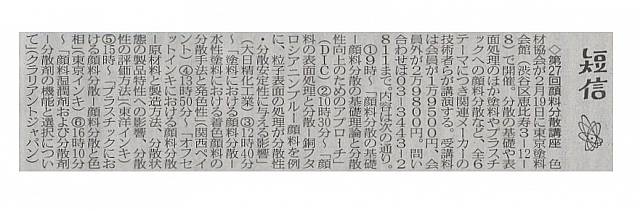 短信
◇第27回顔料分散講座　色
材協会が2月19日に東京塗料
会館（渋谷区恵比寿3−12−
8）で開催。分散の基礎や表
面処理のほか塗料やプラスチ
ックへの顔料分散など、全6
テーマにつき関連メーカーの
技術者らが講演する。受講料
は会員1万9800円、会
員外が2万9800円。問い
合わせは03−3443−2
811まで。内容は次の通り。
①9時〜「顔料分散の基礎
−顔料分散の基礎理論と分散
性向上のためのアプローチ」
（DIC）②10時30分〜「顔
料の表面処理と分散−銅フタ
ロシアニンブルー顔料を例
に、粒子表面の処理が分散性
・分散安定性に与える影響」
（大日精化工業）③12時40分
〜「塗料における顔料分散−
水性塗料における着色顔料の
分散手法と発色性」（関西ペイ
ント）④13時50分〜「オフセ
ットインキにおける顔料分散
−原材料と製造方法、分散状
態の製品特性への影響、分散
性の評価方法」（東洋インキ）
⑤15時〜「プラスチックにお
ける顔料分散−顔料分散と色
相」（東京インキ）⑥16時10分
〜「顔料湿潤剤および分散剤
−分散剤の機能と選択につい
て」（クラリアントジャパン）